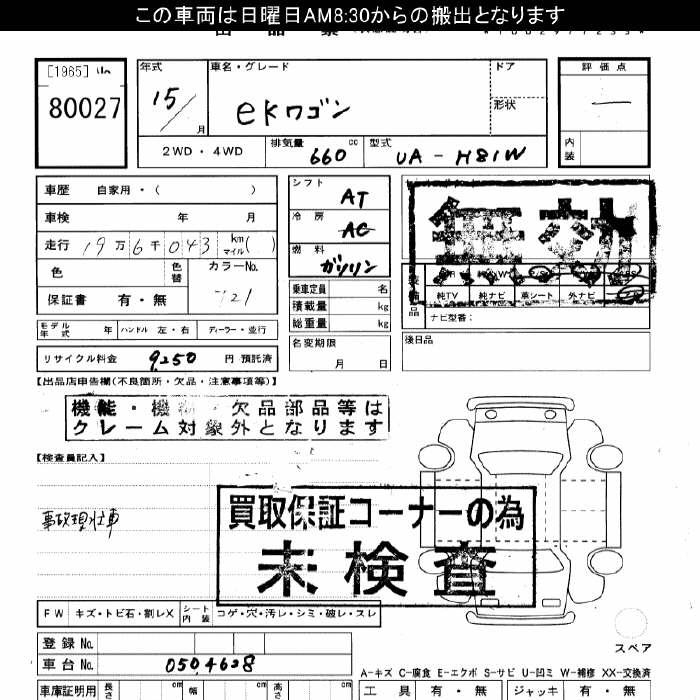 この車両は日曜日AM8:30からの搬出となります
[1965]
80027
年式
15/
月
車名・グレード
ekワゴン
ドア
形状
評価点
内装
2WD・4WD
排気量
660
cc
型式
UA-H81W
車歴 自家用・( )
車検 年 月
走行 19万6千043 km マイル( )
色
色替
カラーNo.
保証書 有・無
シフト
AT
冷房
AC
燃料
ガソリン
乗車定員 名
積載量 kg
総重量 kg
モデル年式 年 ハンドル 左・右 ディーラー・並行
名変期限
月 日
リサイクル料金 9,250 円 預託済
純TV 純ナビ 革シート 外ナビ
ナビ型番:
後日品
【出品店申告欄(不良箇所・欠品・注意事項等)】
機能・機 ・欠品部品等は
クレーム対象外となります
【検査員記入】
買取保証コーナーの為
未検査
事故現状車
FW キズ・トビ石・割レX
シート内装 コゲ・穴・汚レ・シミ・破レ・スレ
スペア
登録No.
車台No. 0504628
A-キズ C-腐食 E-エクボ S-サビ U-凹ミ W-補修 XX-交換済
車庫証明用 長さ cm 幅 cm 高さ cm
工具 有・無 ジャッキ 有・無